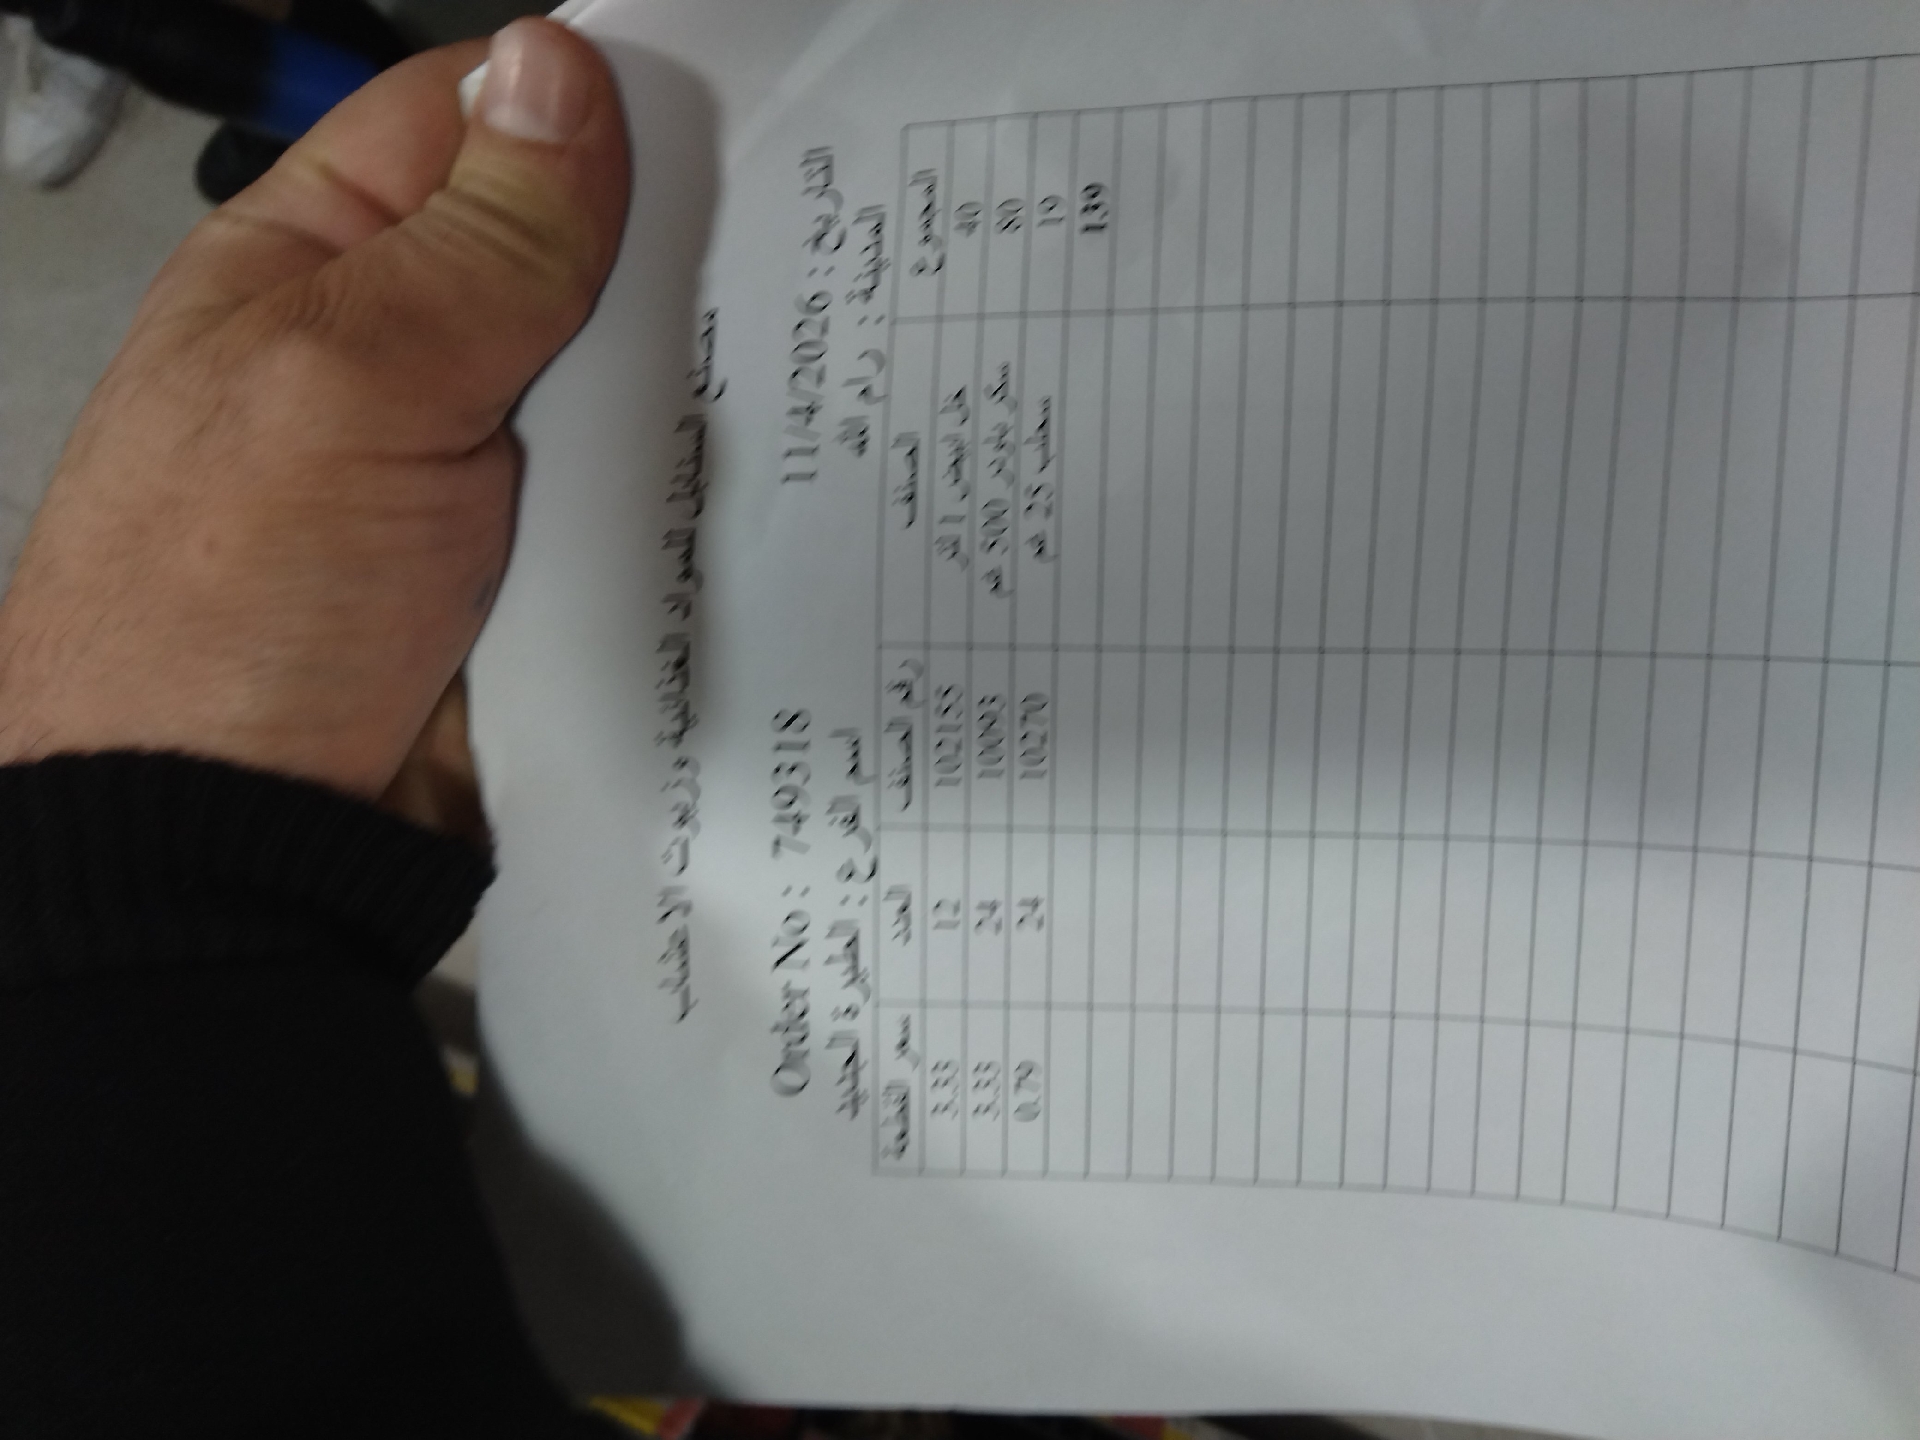 مصنع السنابل للمواد الغذائية وزيوت الاعشاب
Order No : 749318 التاريخ : 11/4/2026
اسم الفرع : الطيرة الجديد المدينة : رام الله
سعر القطعة العدد رقم الصنف الصنف المجموع
3.33 12 102155 خل ابيض 1 لتر 40
3.33 24 10093 سكر بودر 500 غم 80
0.79 24 10270 سحلب 25 غم 19
139